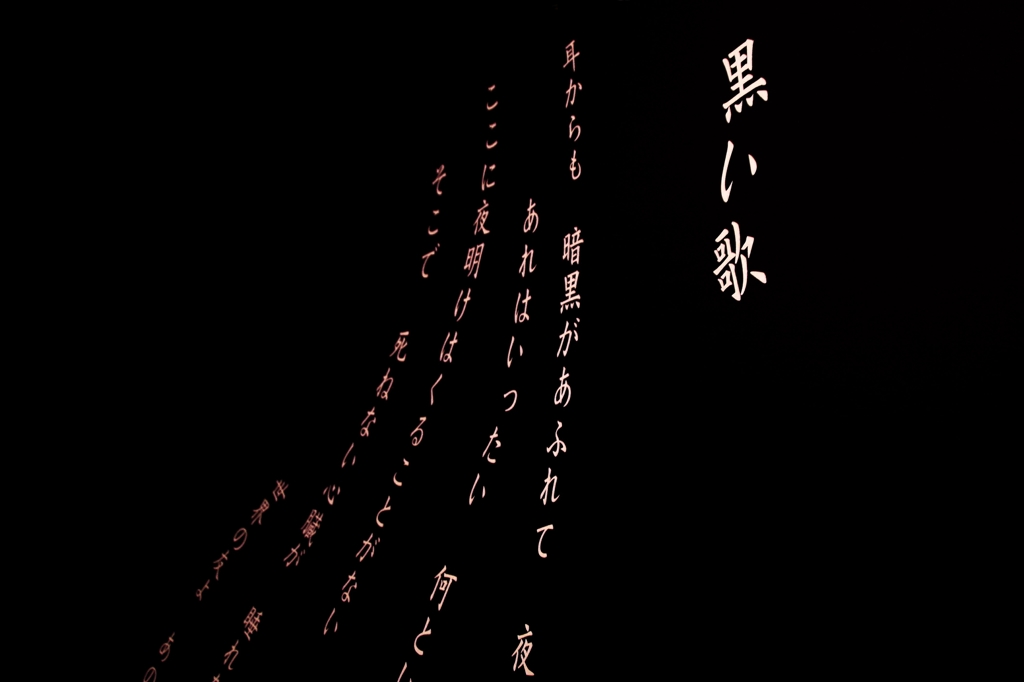 黒い歌
耳からも 暗黒があふれて 夜
あれはいったい 何とい
ここに夜明けはくることがない
そこで 死ねない心臓が
の